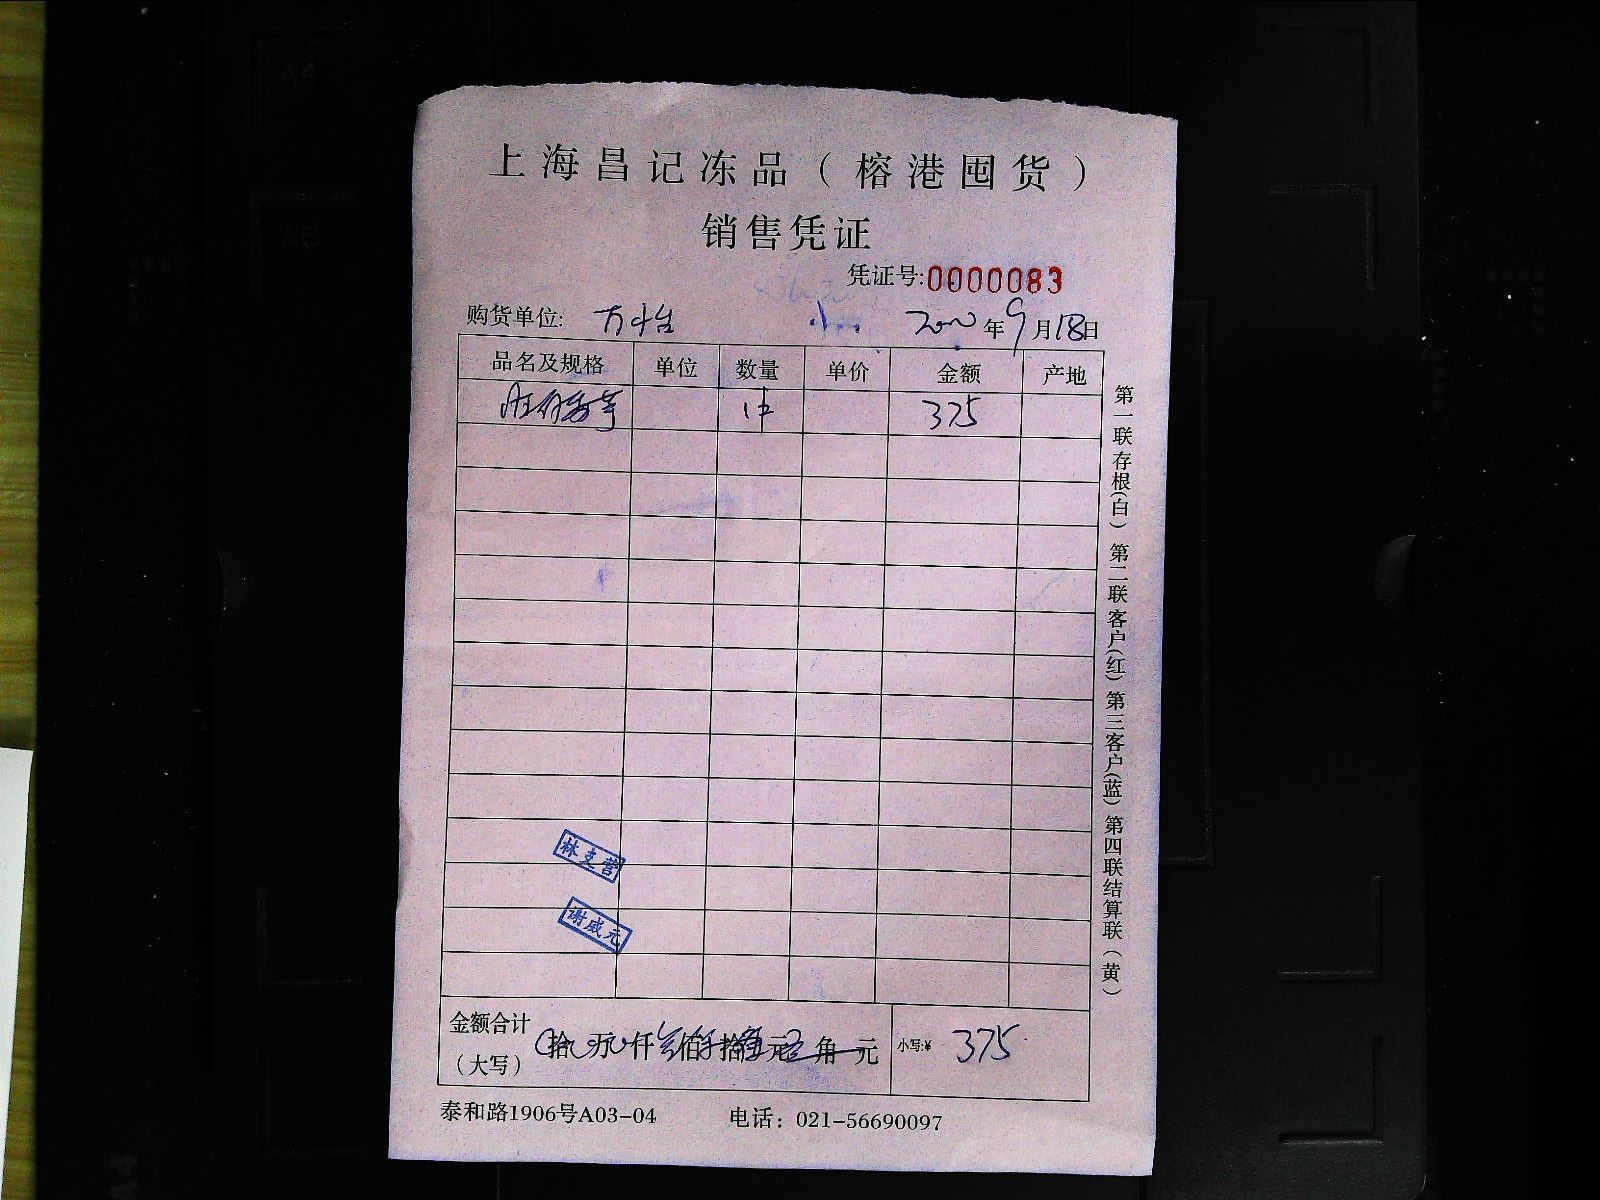 上海昌记冻品（榕港囤货）
销售凭证
凭证号:0000083
购货单位: 年9月18日
品名及规格 单位 数量 单价 金额 产地
1件 375
林支营
谢威元
金额合计
（大写） 拾 万 仟 佰 拾 元 角 元 小写:¥ 375
泰和路1906号A03-04 电话：021-56690097
第一联存根(白) 第二联客户(红) 第三客户(蓝) 第四联结算联(黄)